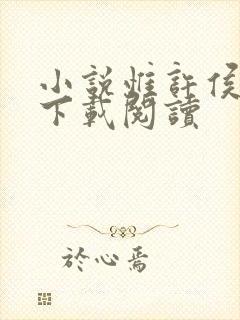 小說惟許侯
下載閱讀
於心焉